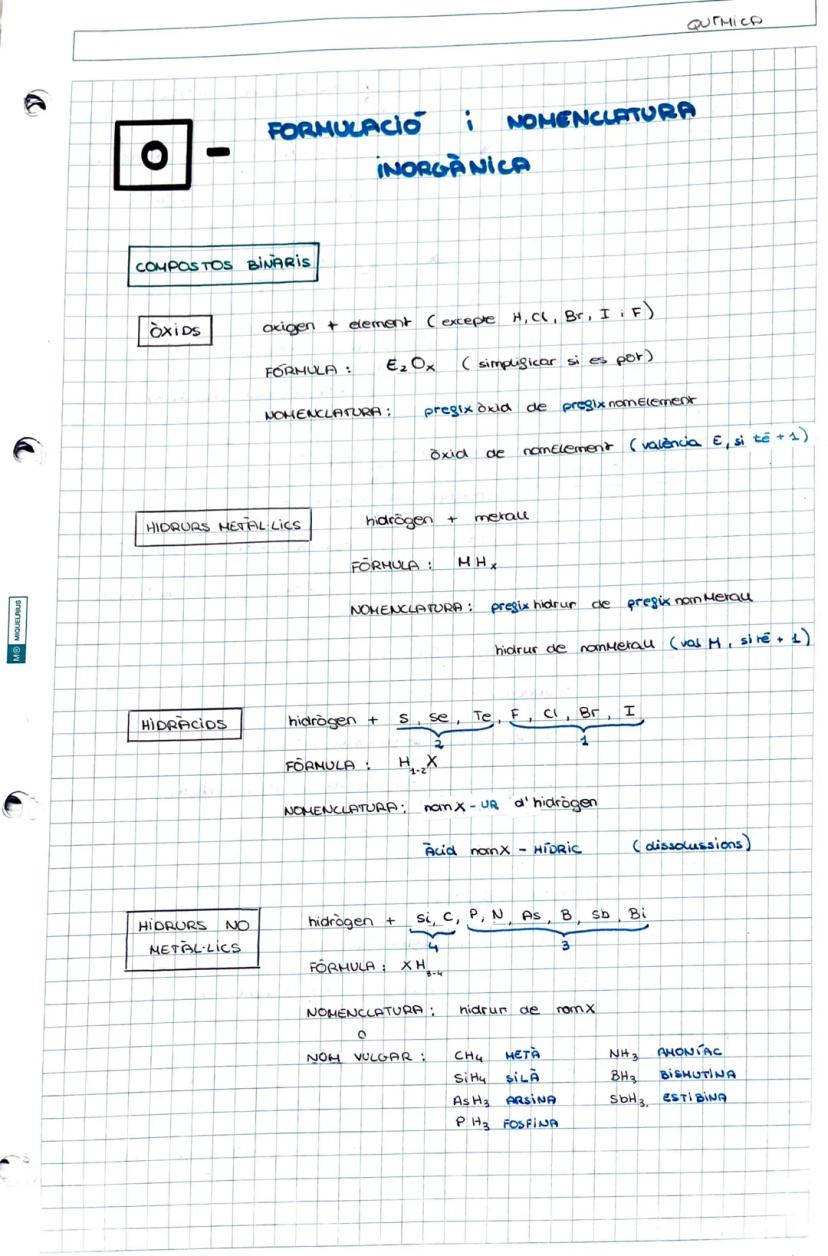 QUÍMICA
0 - FORMULACIÓ i NOMENCLATURA
INORGÀNICA
COMPOSTOS BINARIS
ÒXIDS
oxigen + element (excepte H, Cl, Br, I i F)
FÓRMULA : E₂Oₓ (simplificar si es pot)
NOMENCLATURA : prefix òxid de prefix nomElement
òxid de nomElement (valència E, si té + 1)
HIDRURS METÀL·LICS
hidrògen + metall
FÓRMULA : MHₓ
NOMENCLATURA : prefix hidrur de prefix nomMetall
hidrur de nomMetall (val M, si té + 1)
HIDRÀCIDS
hidrògen + S, Se, Te, F, Cl, Br, I
2 1
FÓRMULA : H₁₋₂X
NOMENCLATURA : nom X - UR d'hidrògen
Àcid nomX - HÍDRIC (dissolussions)
HIDRURS NO
METÀL·LICS
hidrògen + Si, C, P, N, As, B, Sb, Bi
4 3
FÓRMULA : XH₃₋₄
NOMENCLATURA : hidrur de nomX
o
NOM VULGAR : CH₄ METÀ NH₃ AMONÍAC
SiH₄ SILÀ BH₃ BISMUTINA
AsH₃ ARSINA SbH₃ ESTIBINA
PH₃ FOSFINA
MIQUELRIUS